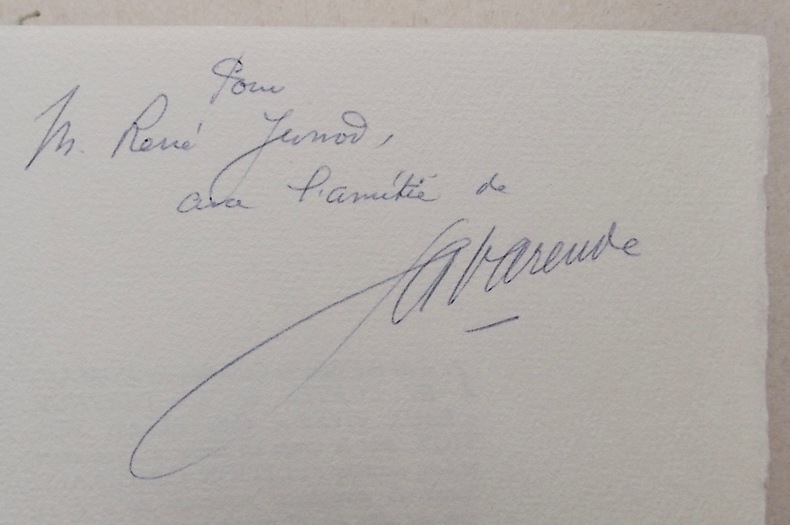 Pour
M. René Junod,
avec l'amitié de
La Varende